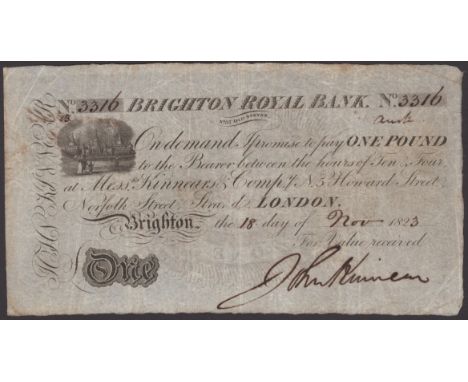 No. 3316 BRIGHTON ROYAL BANK. No. 3316
On demand I promise to pay ONE POUND
to the Bearer between the hours of Ten & Four
at Messrs. Kinnears & Compy. N. 5 Howard Street
Norfolk Street, Strand, LONDON.
Brighton, the 18 day of Nov 1823
For Value received
One
John Kinnear